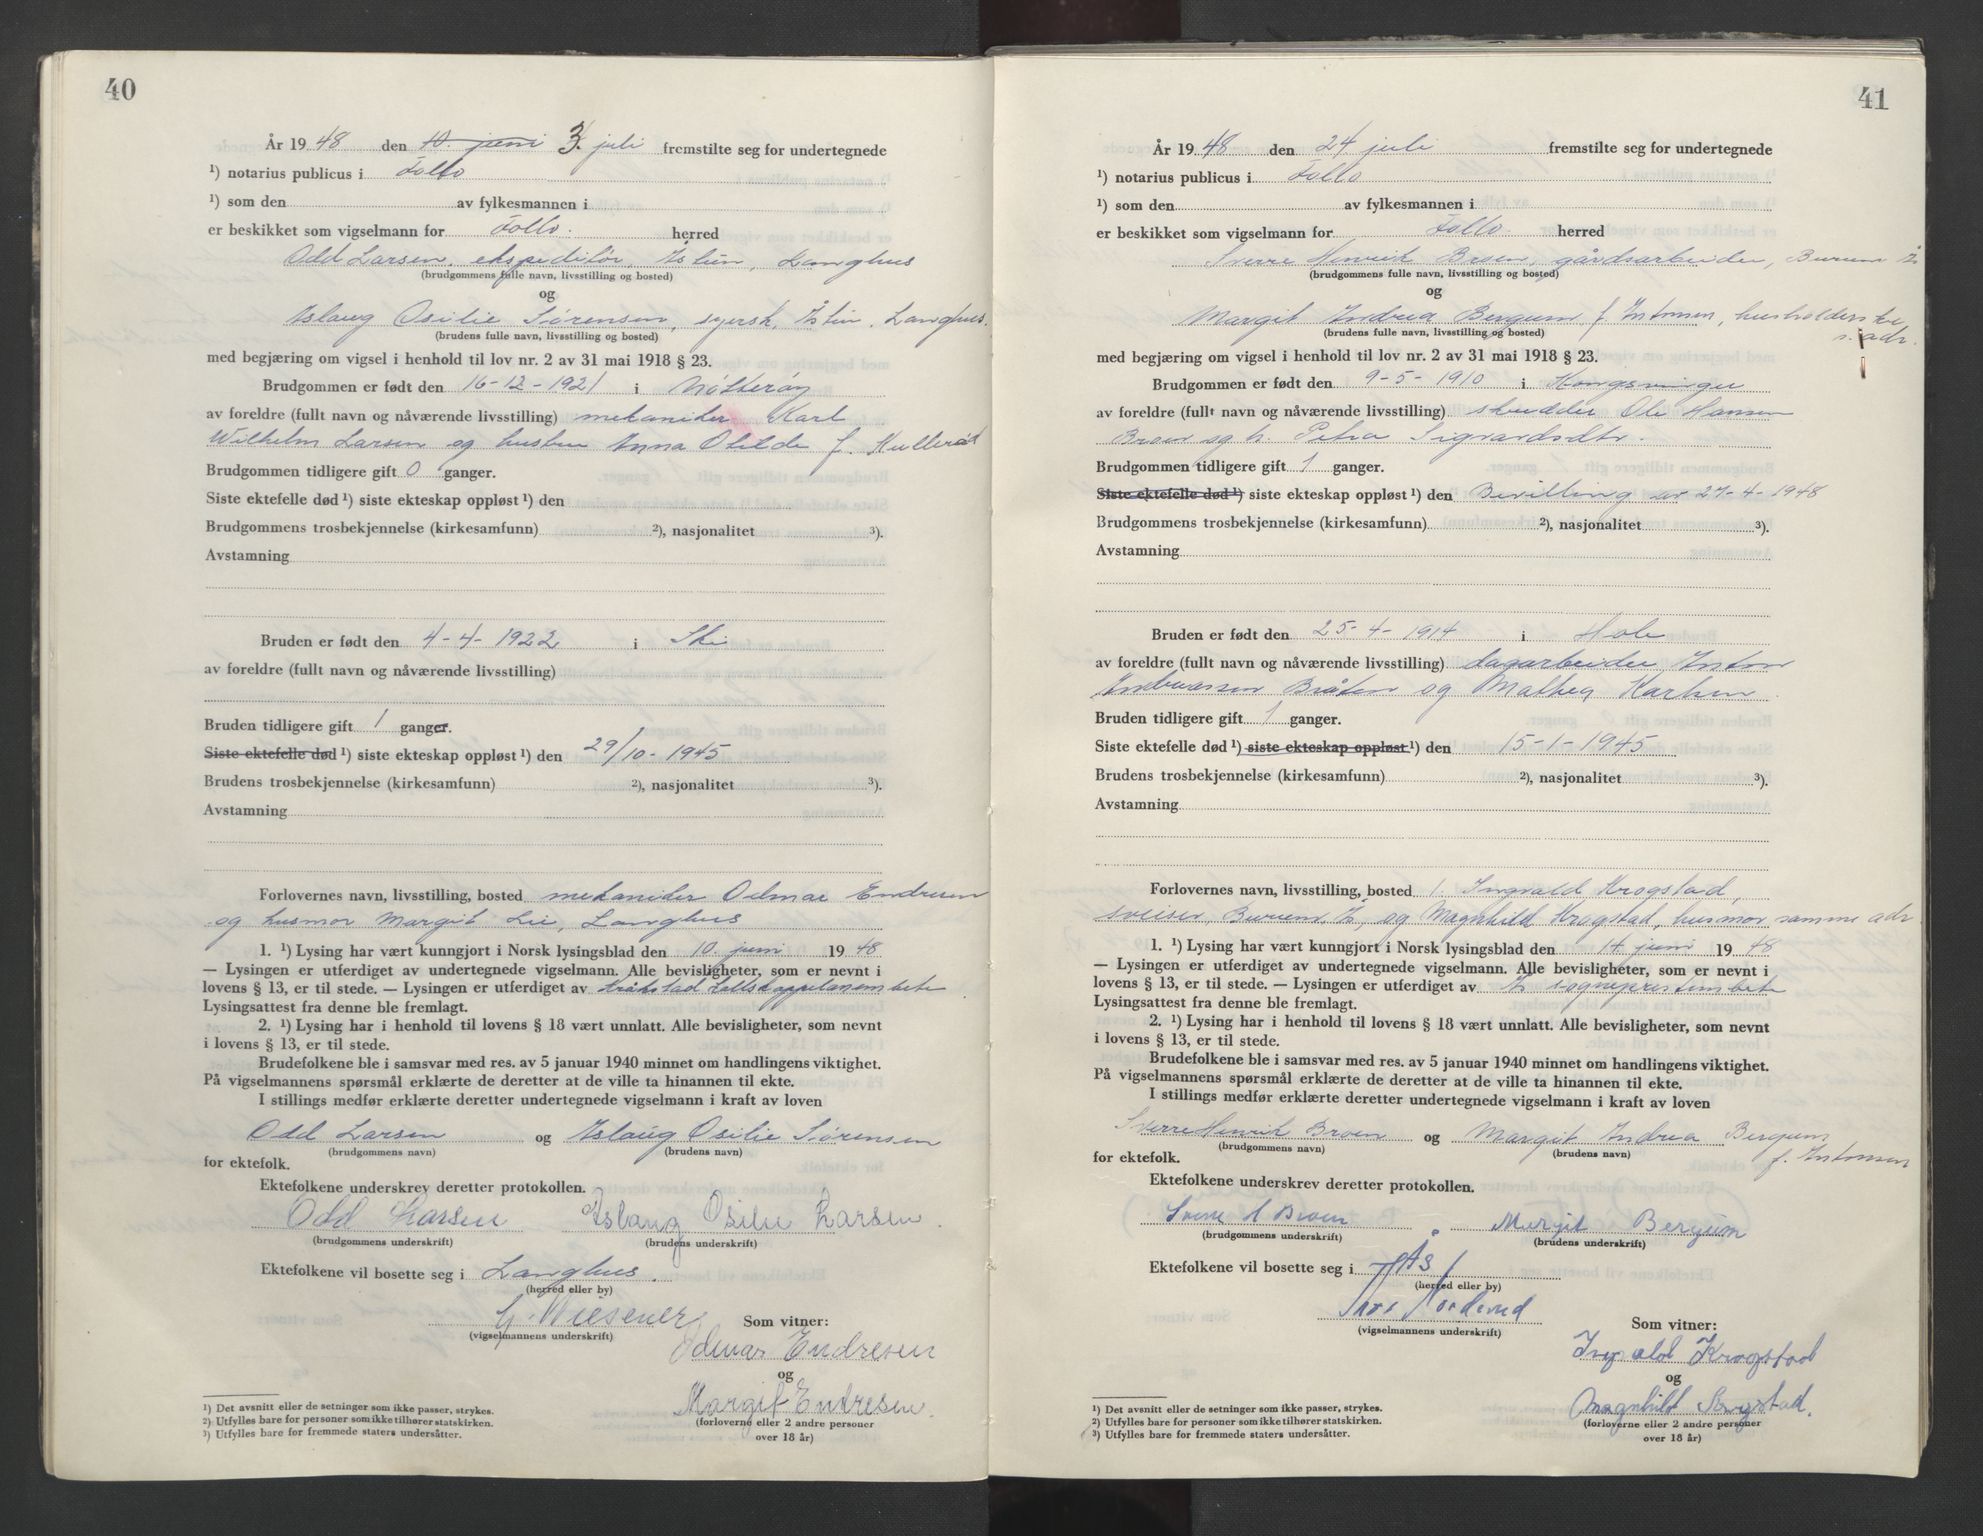 40
År 1948 den ~~10. juni~~ 3. juli fremstilte seg for undertegnede
¹) notarius publicus i Follo
¹) som den av fylkesmannen i
er beskikket som vigselmann for Follo. herred
Odd Larsen, ekspeditør, Langhus
(brudgommens fulle navn, livsstilling og bosted)
og
Aslaug Osilie Sørensen, syersk, Langhus.
(brudens fulle navn, livsstilling og bosted)
med begjæring om vigsel i henhold til lov nr. 2 av 31 mai 1918 § 23.
Brudgommen er født den 16-12-1921 i Nøtterøy
av foreldre (fullt navn og nåværende livsstilling) mekaniker Karl
Wilhelm Larsen og hustru Anna f.
Brudgommen tidligere gift 0 ganger.
Siste ektefelle død ¹) siste ekteskap oppløst ¹) den
Brudgommens trosbekjennelse (kirkesamfunn) ²), nasjonalitet ³).
Avstamning
Bruden er født den 4-4-1922 i Ski
av foreldre (fullt navn og nåværende livsstilling)
Bruden tidligere gift 1 ganger.
~~Siste ektefelle død~~ ¹) siste ekteskap oppløst ¹) den 29/10-1945
Brudens trosbekjennelse (kirkesamfunn) ²), nasjonalitet ³).
Avstamning
Forlovernes navn, livsstilling, bosted mekaniker Odmar Endresen
og husmor Margit Lie, Langhus
1. ¹) Lysing har vært kunngjort i Norsk lysingsblad den 10. juni 1948
— Lysingen er utferdiget av undertegnede vigselmann. Alle bevisligheter, som er nevnt i
lovens § 13, er til stede. — Lysingen er utferdiget av Kråkstad kallskappelanembete
Lysingsattest fra denne ble fremlagt.
2. ¹) Lysing har i henhold til lovens § 18 vært unnlatt. Alle bevisligheter, som nevnt
i lovens § 13, er til stede.
Brudefolkene ble i samsvar med res. av 5 januar 1940 minnet om handlingens viktighet.
På vigselmannens spørsmål erklærte de deretter at de ville ta hinannen til ekte.
I stillings medfør erklærte deretter undertegnede vigselmann i kraft av loven
Odd Larsen og Aslaug Osilie Sørensen
(brudgommens navn) (brudens navn)
for ektefolk.
Ektefolkene underskrev deretter protokollen.
Odd Larsen Aslaug Osilie Larsen.
(brudgommens underskrift) (brudens underskrift)
Ektefolkene vil bosette seg i Langhus.
(herred eller by)
G. Wiesener
(vigselmannens underskrift) Som vitner:
Odmar Endresen
og
Margit Endresen.
(forloverne eller 2 andre personer
over 18 år)
¹) Det avsnitt eller de setninger som ikke passer, strykes.
²) Utfylles bare for personer som ikke tilhører statskirken.
³) Utfylles bare for fremmede staters undersåtter.
41
År 1948 den 24 juli fremstilte seg for undertegnede
¹) notarius publicus i Follo
¹) som den av fylkesmannen i
er beskikket som vigselmann for Follo. herred
Sverre Henrik Broen, gårdsarbeider, Burum Ås
(brudgommens fulle navn, livsstilling og bosted)
og
Margit Andrea Bergum f. Antonsen, husholderske
s. adr.
(brudens fulle navn, livsstilling og bosted)
med begjæring om vigsel i henhold til lov nr. 2 av 31 mai 1918 § 23.
Brudgommen er født den 9-5-1910 i Kongsvinger
av foreldre (fullt navn og nåværende livsstilling) skredder Ole Hansen
Broen og h. Petra Sigvardsdtr.
Brudgommen tidligere gift 1 ganger.
~~Siste ektefelle død ¹)~~ siste ekteskap oppløst ¹) den Bevilling av 27-4-1948
Brudgommens trosbekjennelse (kirkesamfunn) ²), nasjonalitet ³).
Avstamning
Bruden er født den 25-4-1914 i Hole
av foreldre (fullt navn og nåværende livsstilling) dagarbeider Anton
Andreassen Bråten og Mathea Karlsen
Bruden tidligere gift 1 ganger.
Siste ektefelle død ¹) ~~siste ekteskap oppløst~~ ¹) den 15-1-1945
Brudens trosbekjennelse (kirkesamfunn) ²), nasjonalitet ³).
Avstamning
Forlovernes navn, livsstilling, bosted 1. Ingvald Krogstad,
sveiser, Burum Ås, og Magnhild Krogstad, husmor samme adr.
1. ¹) Lysing har vært kunngjort i Norsk lysingsblad den 14. juni 1948
— Lysingen er utferdiget av undertegnede vigselmann. Alle bevisligheter, som er nevnt i
lovens § 13, er til stede. — Lysingen er utferdiget av Ås sogneprestembete
Lysingsattest fra denne ble fremlagt.
2. ¹) Lysing har i henhold til lovens § 18 vært unnlatt. Alle bevisligheter, som nevnt
i lovens § 13, er til stede.
Brudefolkene ble i samsvar med res. av 5 januar 1940 minnet om handlingens viktighet.
På vigselmannens spørsmål erklærte de deretter at de ville ta hinannen til ekte.
I stillings medfør erklærte deretter undertegnede vigselmann i kraft av loven
Sverre Henrik Broen og Margit Andrea Bergum
f. Antonsen
(brudgommens navn) (brudens navn)
for ektefolk.
Ektefolkene underskrev deretter protokollen.
Sverre H Broen Margit Bergum
(brudgommens underskrift) (brudens underskrift)
Ektefolkene vil bosette seg i Ås
(herred eller by)
(vigselmannens underskrift) Som vitner:
Ingvald Krogstad
og
Magnhild Krogstad.
(forloverne eller 2 andre personer
over 18 år)
¹) Det avsnitt eller de setninger som ikke passer, strykes.
²) Utfylles bare for personer som ikke tilhører statskirken.
³) Utfylles bare for fremmede staters undersåtter.